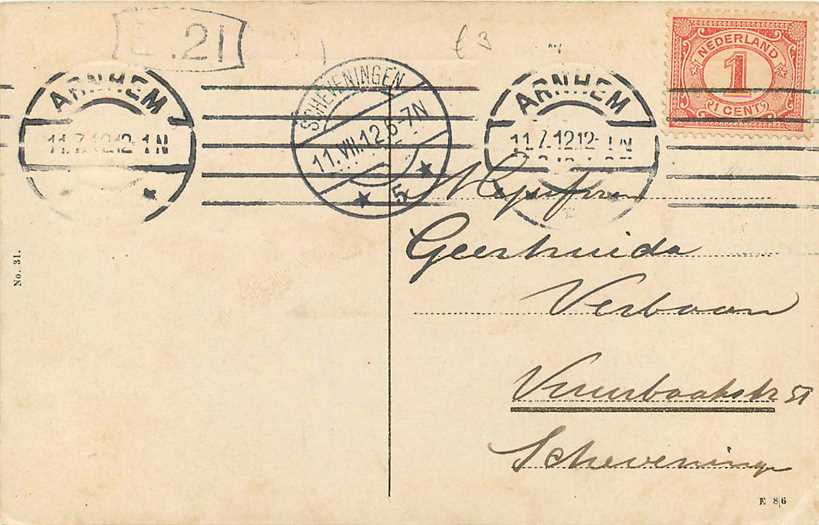 .21
€ 3
ARNHEM
11.7.12 12-1N
SCHEVENINGEN
11.VII.12 6-7N
5
ARNHEM
11.7.12 12-1N
NEDERLAND
1
1 CENT
Mejufvr
Geertruida
Verboon
Vuurbaakstr 51
Scheveninge
No. 31.
E 86